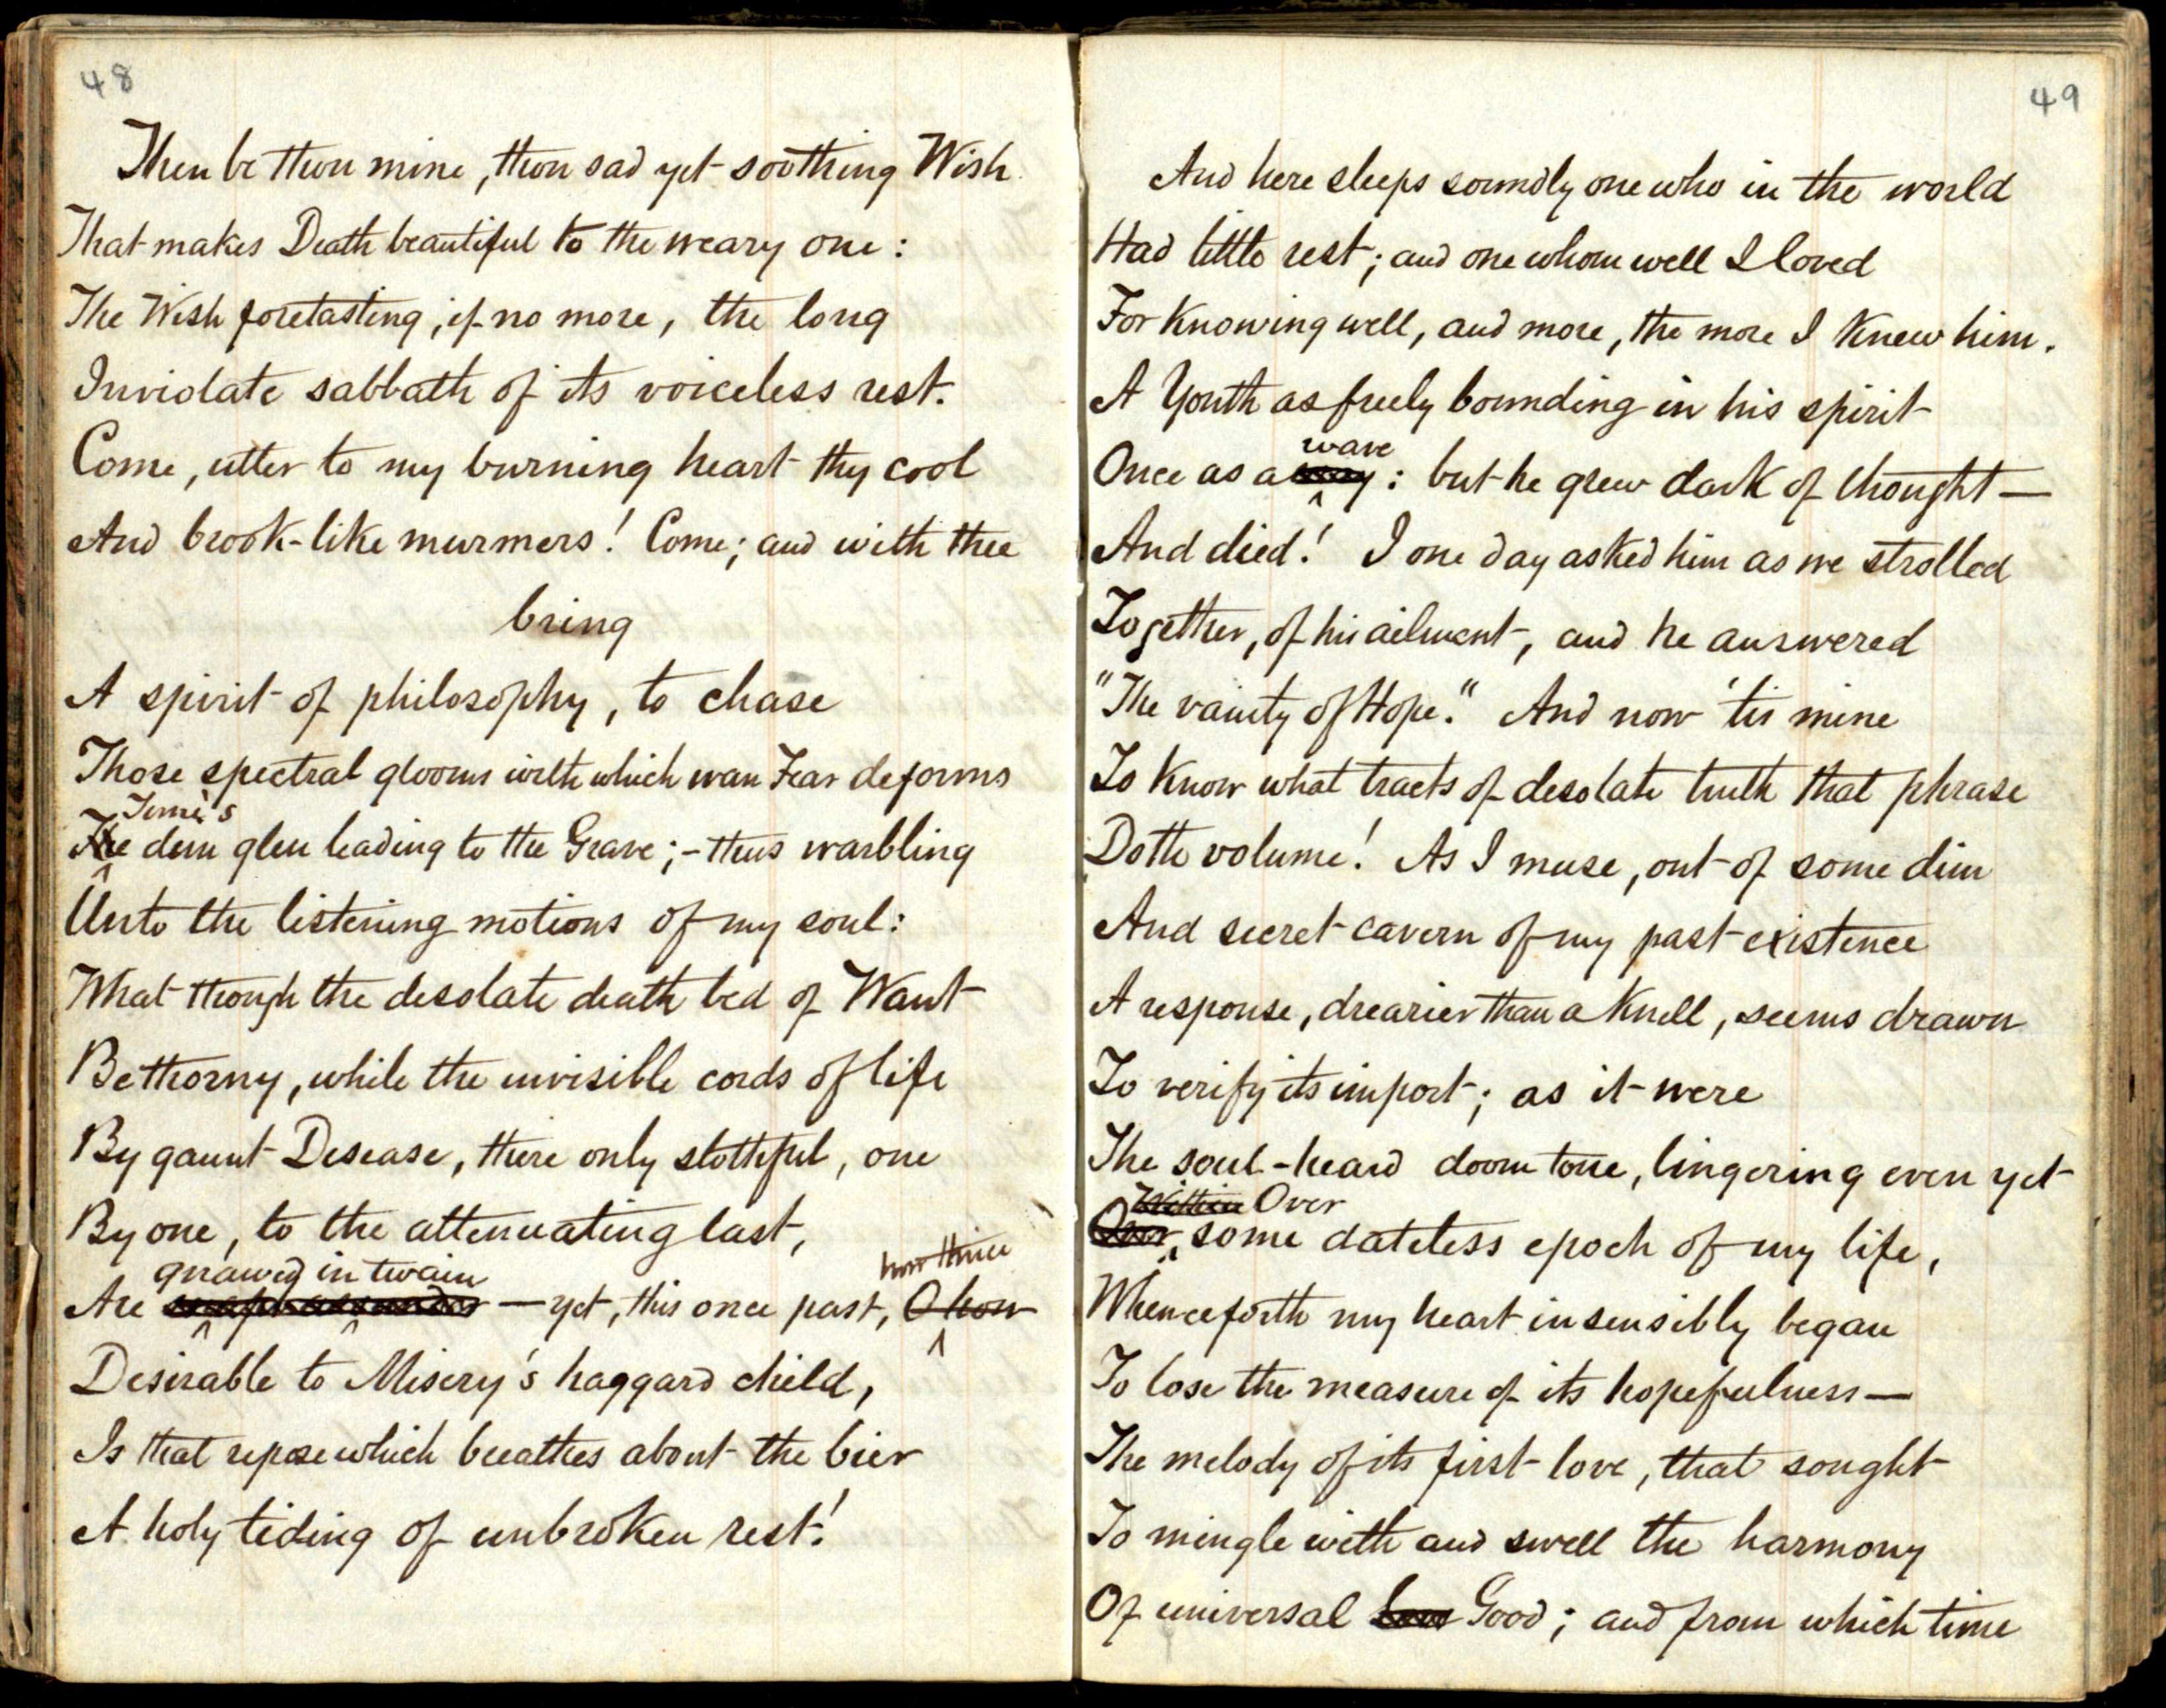 48
Then be thou mine, thou sad yet soothing Wish
That makes Death beautiful to the weary one:
The Wish foretasting, if no more, the long
Inviolate sabbath of its voiceless rest.
Come, utter to my burning heart thy cool
And brook-like murmers! Come; and with thee
bring
A spirit of philosophy, to chase
Those spectral glooms with which wan Fear deforms
Time's
The dern glen leading to the Grave;—thus warbling
Unto the listening motions of my soul:
What though the desolate death bed of Want
Be thorny, while the invisible cords of life
By gaunt Disease, there only slothful, one
By one, to the attenuating last,
gnawed in twain how thrice
Are — yet, this once past, O how
Desirable to Misery's haggard child,
Is that repose which breathes about the bier
A holy tiding of unbroken rest!
49
And here sleeps soundly one who in the world
Had little rest; and one whom well I loved
For knowing well, and more, the more I knew him.
A Youth as freely bounding in his spirit
wave
Once as a : but he grew dark of thought—
And died! I one day asked him as we strolled
Together, of his ailment, and he answered
"The vainity of Hope." And now 'tis mine
To know what tracts of desolate truth that phrase
Doth volume! As I muse, out of some dim
And secret cavern of my past existence
A response, drearier than a knell, seems drawn
To verify its import; as it were
The soul-heard doom tone, lingering even yet
Within Over
Over some dateless epoch of my life,
Whenceforth my heart insensibly began
To lose the measure of its hopefulness—
The melody of its first love, that sought
To mingle with and swell the harmony
Of universal Good; and from which time